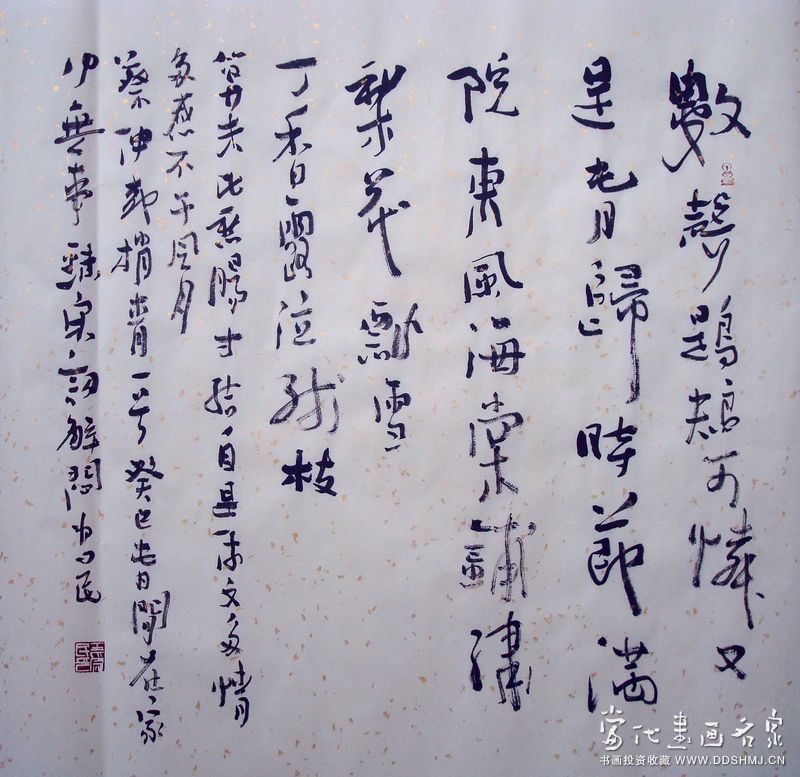 數聲鶗鴂可憐又
是春歸時節滿
院東風海棠鋪繡
梨花飄雪
丁香露泣殘枝
算未比愁腸寸結自是休文多情
多感不干風月
蔡伸柳梢青一首 癸巳春日閒在家
中無事 宋詞解悶 民
当代書画名家
书画投资收藏 WWW.DDSHMJ.CN